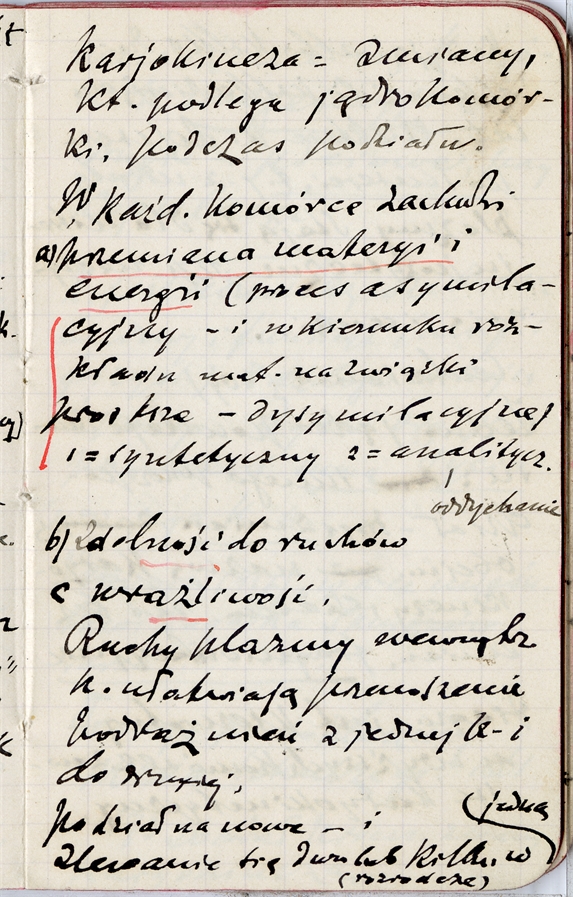 Karjokineza = Zmiany,
kt. podlega jądro komór-
ki, podczas podziału.
W każd. komórce zachodzi
a) przemiana materyi i
energii (proces asymila-
cyjny - i w kierunku roz-
kładu mat. na związki
prostsze - dysymilacyjnej
1 = syntetyczny 2 = analitycz.
oddychanie
b) Zdolność do ruchów
c wrażliwość.
Ruchy plazmy wewnątrz
k. ułatwiają przenoszenie
podrażnień z jednej k-i
do drugiej,
podział na nowe - i
(jedną
Zlewanie się dwu lub kilku w
(rozrodcze)